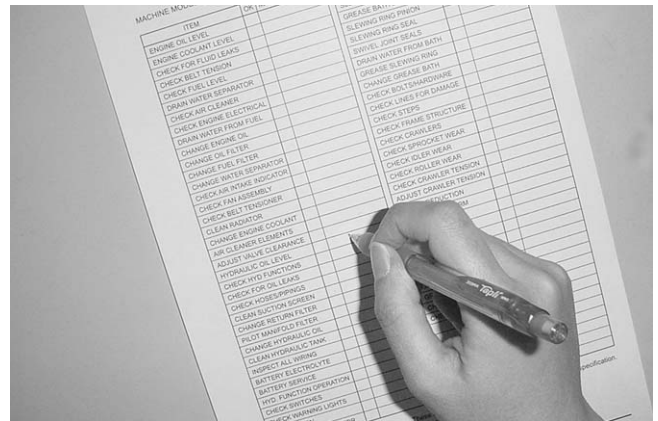 MACHINE MODE
ITEM
OK
ENGINE OIL LEVEL
ENGINE COOLANT LEVEL
CHECK FOR FLUID LEAKS
CHECK BELT TENSION
CHECK FUEL LEVEL
DRAIN WATER SEPARATOR
CHECK AIR CLEANER
CHECK ENGINE ELECTRICAL
DRAIN WATER FROM FUEL
CHANGE ENGINE OIL
CHANGE OIL FILTER
CHANGE FUEL FILTER
CHANGE WATER SEPARATOR
CHECK AIR INTAKE INDICATOR
CHECK FAN ASSEMBLY
CHECK BELT TENSIONER
CLEAN RADIATOR
CHANGE ENGINE COOLANT
AIR CLEANER ELEMENTS
ADJUST VALVE CLEARANCE
HYDRAULIC OIL LEVEL
CHECK HYD FUNCTIONS
CHECK FOR OIL LEAKS
CHECK HOSES/PIPINGS
CLEAN SUCTION SCREEN
CHANGE RETURN FILTER
PILOT MANIFOLD FILTER
CHANGE HYDRAULIC OIL
CLEAN HYDRAULIC TANK
INSPECT ALL WIRING
BATTERY ELECTROLYTE
BATTERY SERVICE
HYD. FUNCTION OPERATION
CHECK SWITCHES
CHECK WARNING LIGHTS
GREASE BATH
SLEWING RING PINION
SLEWING RING SEAL
SWIVEL JOINT SEALS
DRAIN WATER FROM BATH
GREASE SLEWING RING
CHANGE GREASE BATH
CHECK BOLTS/HARDWARE
CHECK LINES FOR DAMAGE
CHECK STEPS
CHECK FRAME STRUCTURE
CHECK CRAWLERS
CHECK SPROCKET WEAR
CHECK IDLER WEAR
CHECK ROLLER WEAR
CHECK CRAWLER TENSION
ADJUST CRAWLER TENSION
REDUCTION
specification.